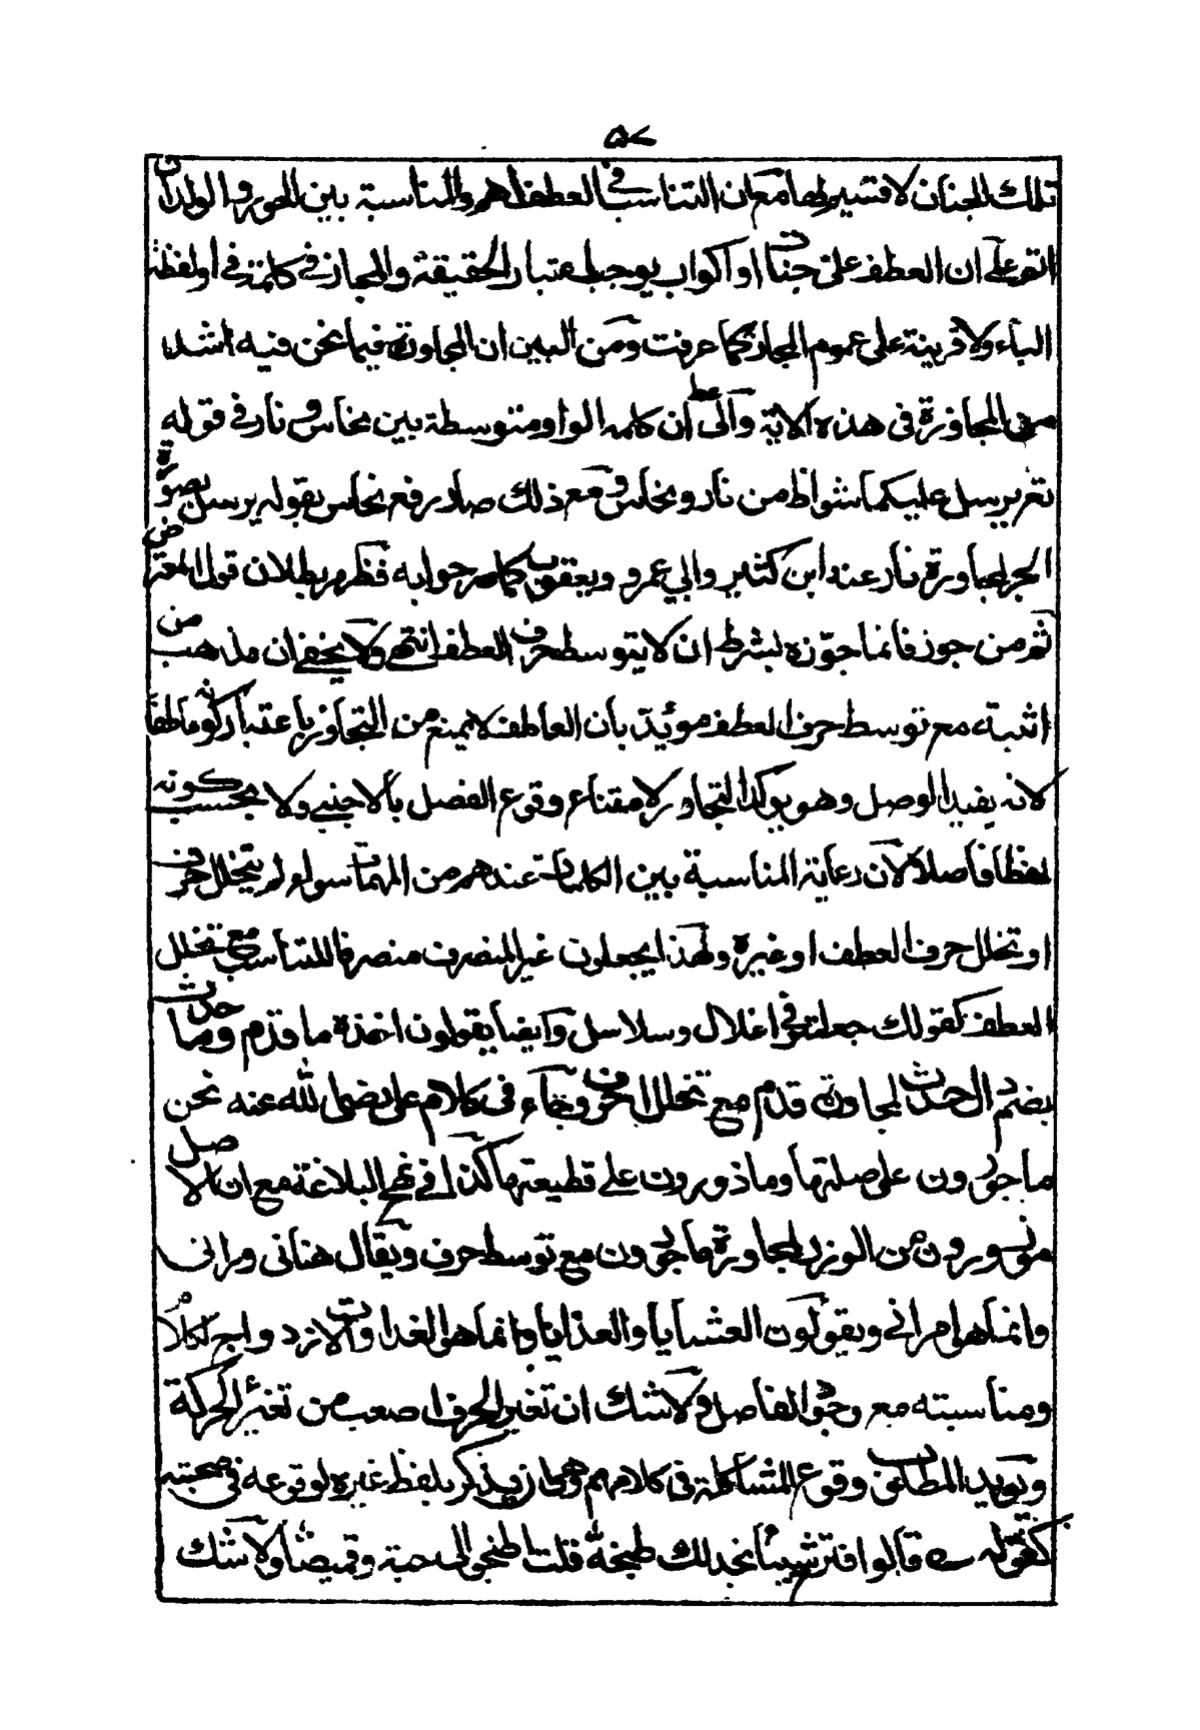 ٥٧
تلك الجنان لا قسيم لها مع ان التناسب في العطف اهم والمناسبة بين الحور والولدان
اتم على ان العطف على جنات او اكواب يوجب اعتبار الحقيقة والمجاز في كلمة في او لفظة
الباء ولا قرينة على عموم المجاز كما عرفت ومن البين ان المجاورة فيما نحن فيه اشد
من المجاورة في هذه الاية وآلى ان كلمة الواو متوسطة بين نحاس ونار في قوله
تعه يرسل عليكما شواظ من نار ونحاس ومع ذلك صار رفع نحاس بقوله يرسل بصورة
الجر لمجاورة نار عند ابن كثير وابي عمرو ويعقوب كما مر جوابه فظهر بطلان قول المعترض
ثم من جوز فانما جوّزه بشرط ان لا يتوسط حرف العطف انتهى ولا يخفى ان مذهب من
اثبته مع توسط حرف العطف مويد بان العاطف لا يمنع من التجاور باعتبار كونه عاطفا
لانه يفيد الوصل وهو يوكد التجاور لامتناع وقوع الفصل بالاجنبي ولا بحسب كونه
لفظا فاصلا لان رعاية المناسبة بين الكلمات عندهم من المهمات سواء لم يتخلل حرف
او تخلل حرف العطف او غيره ولهذا يجعلون غير المنصرف منصرفا للتناسب مع تخلل
العطف كقولك جعلته في اغلال وسلاسل وايضا يقولون اخذه ما قدم وما حدث
بضم دال حدث لمجاورة قدم مع تخلل الحرف وجاء في كلام على رضى الله عنه نحن
ما جورون على صلتها وماذورون على قطيعتها كذا في نهج البلاغة مع ان الاصل
موزورون من الوزر لمجاورة ماجورون مع توسط حرف ويقال هنانى ومرانى
وانما هو امرانى ويقولون العشايا والغدايا وانما هو الغدوات والازدواج لكلام
ومناسبته مع وجود الفاصل ولا شك ان تغيير الحرف اصعب من تغيير الحركة
ويويد المطلب وقوع المشاكلة في كلامهم وهي ذكر بلفظ غيره لوقوعه في صحبته
كقوله س قالوا اقترح شيئا نجد لك طبخه قلت اطبخوا لى جبة وقميصا ولا شك